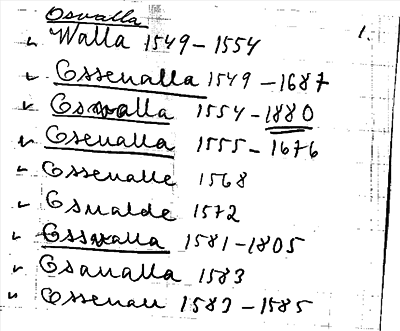 Osvalla 1.
" Walla 1549-1554
" Essevalla 1549-1687
" Esswalla 1554-1880
" Esevalla 1555-1676
" Essevalle 1568
" Esvalde 1572
" Essvalla 1581-1805
" Esavalla 1583
" Essevall 1583-1585